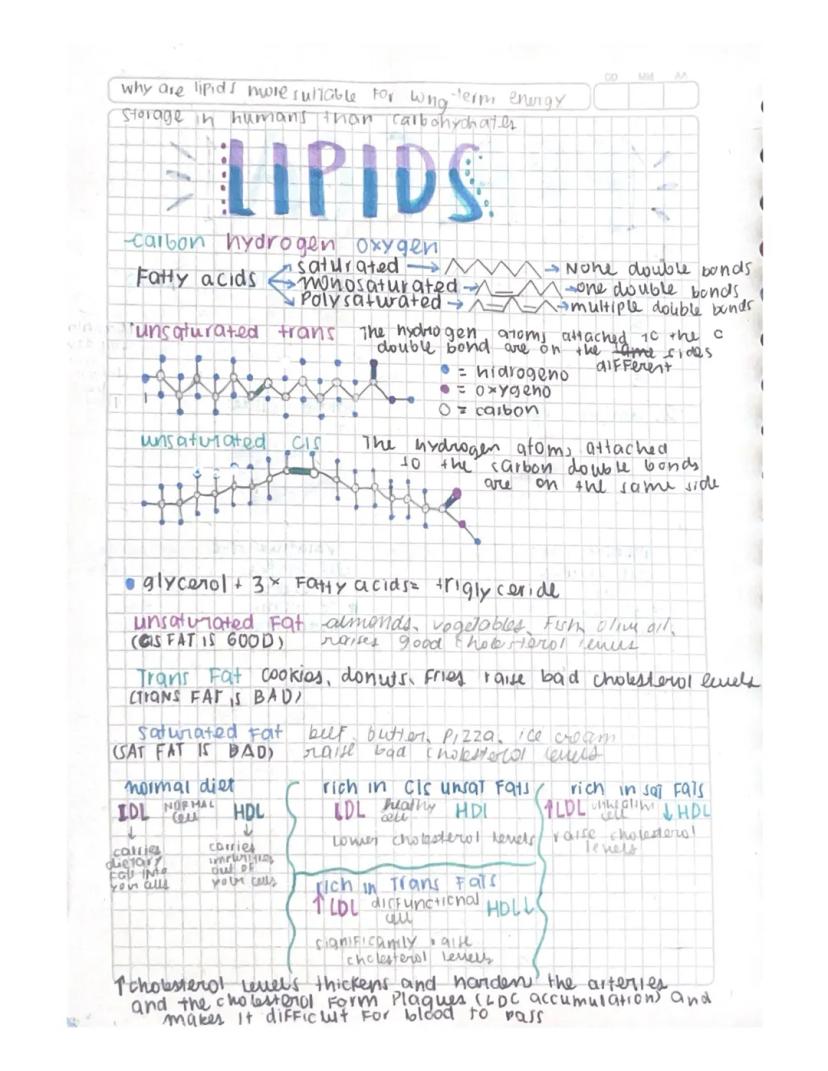 DD MM AA
why are lipids more suitable for long-term energy
storage in humans than carbohydrates
LIPIDS
-carbon hydrogen oxygen
Fatty acids
saturated → → None double bonds
monosaturated → → one double bonds
Polysaturated → → multiple double bonds
unsaturated trans The hydrogen atoms attached to the c
double bond are on the same sides
different
= hidrogeno
= oxygeno
= carbon
unsaturated cis The hydrogen atoms attached
to the carbon double bonds
are on the same side
• glycerol + 3x Fatty acids= triglyceride
unsaturated Fat almonds, vegetables, Fish, olive oil,
(CIS FAT IS GOOD) raises good cholesterol levels
Trans Fat cookies, donuts, Fries raise bad cholesterol levels
(TRANS FAT IS BAD)
saturated Fat beef, butter, pizza, ice cream
(SAT FAT IS BAD) raise bad cholesterol levels
normal diet
LDL NORMAL cell HDL
↓ ↓
carries dietary fat into your cells
carries out of your cells
rich in cis unsat Fats
LDL healthy cell HDL
Lower cholesterol levels
rich in sat Fats
↑LDL cell ↓HDL
raise cholesterol
levels
rich in Trans Fats
↑LDL disfunctional cell HDL↓
significantly raise
cholesterol levels
↑cholesterol levels thickens and harden the arteries
and the cholesterol form plaques (LDC accumulation) and
makes it difficult for blood to pass